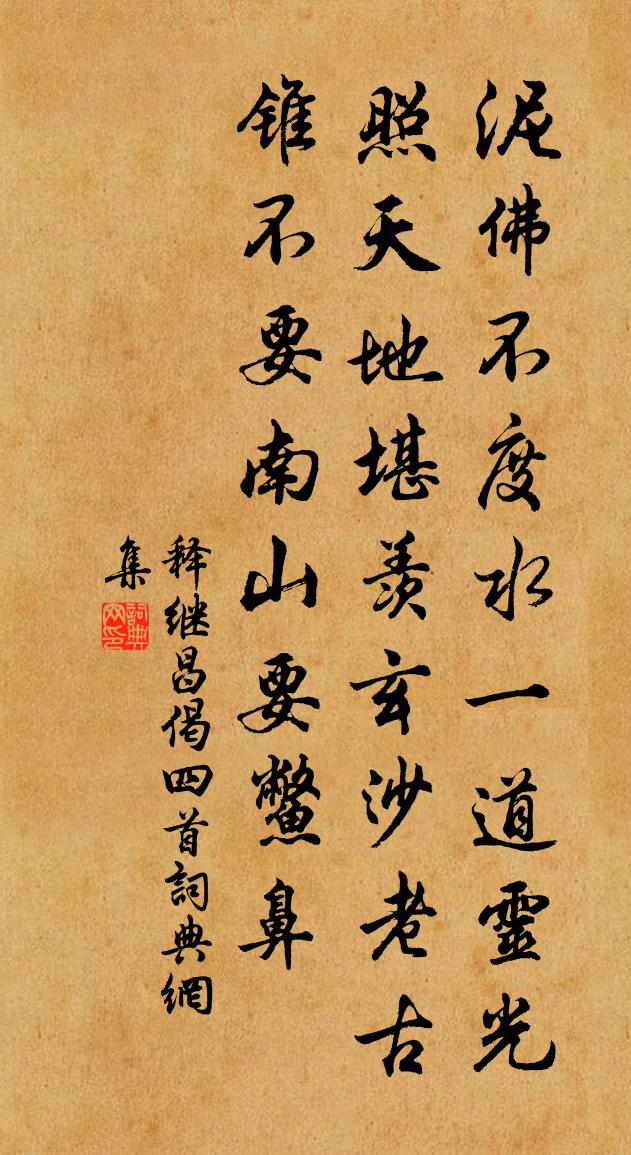 泥佛不度水一道靈光
照天地堪羨玄沙老古
錐不要南山要鱉鼻
释继昌偈四首詞典網
集
詞典網印